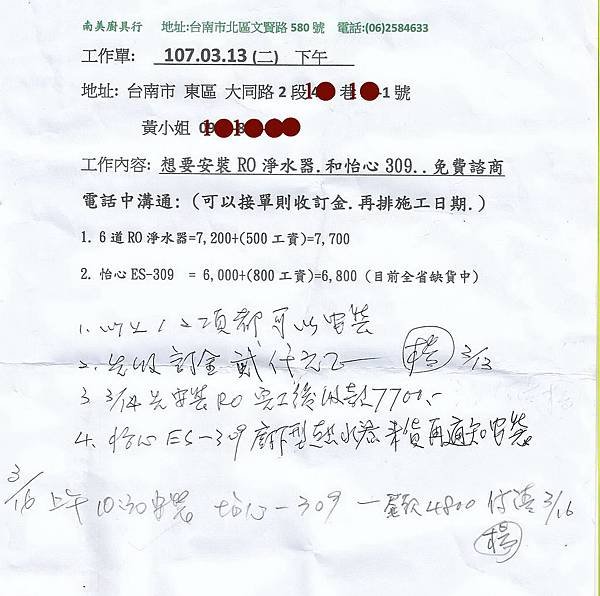 南美廚具行 地址:台南市北區文賢路 580 號 電話:(06)2584633
工作單: 107.03.13 (二) 下午
地址: 台南市 東區 大同路 2 段 巷 -1 號
黃小姐
工作內容: 想要安裝 RO 淨水器.和怡心 309..免費諮商
電話中溝通: (可以接單則收訂金.再排施工日期.)
1. 6 道 RO 淨水器=7,200+(500 工資)=7,700
2. 怡心 ES-309 = 6,000+(800 工資)=6,800 (目前全省缺貨中)
1. 以上 1、2 項都可以安裝
2. 先收訂金貳仟元正 楊 3/13
3. 3/14 先安裝 RO 完工後收款 7700.-
4. 怡心 ES-309 廚下型熱水器 來貨再通知安裝
3/16 上午 10:30 安裝 怡心-309 一 4800 付清 3/16
楊